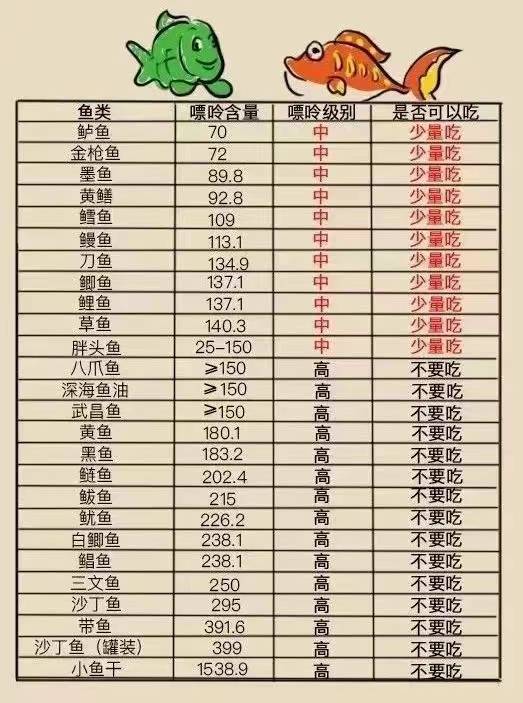 鱼类 嘌呤含量 嘌呤级别 是否可以吃
鲈鱼 70 中 少量吃
金枪鱼 72 中 少量吃
墨鱼 89.8 中 少量吃
黄鳝 92.8 中 少量吃
鳕鱼 109 中 少量吃
鳗鱼 113.1 中 少量吃
刀鱼 134.9 中 少量吃
鲫鱼 137.1 中 少量吃
鲤鱼 137.1 中 少量吃
草鱼 140.3 中 少量吃
胖头鱼 25-150 中 少量吃
八爪鱼 ⩾150 高 不要吃
深海鱼油 ⩾150 高 不要吃
武昌鱼 ⩾150 高 不要吃
黄鱼 180.1 高 不要吃
黑鱼 183.2 高 不要吃
鲢鱼 202.4 高 不要吃
鲅鱼 215 高 不要吃
鱿鱼 226.2 高 不要吃
白鲫鱼 238.1 高 不要吃
鲳鱼 238.1 高 不要吃
三文鱼 250 高 不要吃
沙丁鱼 295 高 不要吃
带鱼 391.6 高 不要吃
沙丁鱼（罐装） 399 高 不要吃
小鱼干 1538.9 高 不要吃